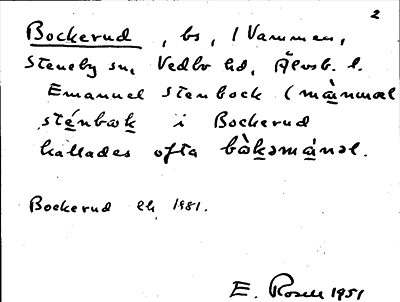 2
Bockerud, bs, i Vammen,
Steneby sn, Vedbo hd, Älvsb. l.
Emanuel Stenbock (mànuəl
sténbɷk i Bockerud
kallades ofta bɷ̀kəmánəl.
Bockerud ek 1981.
E. Rosell 1951